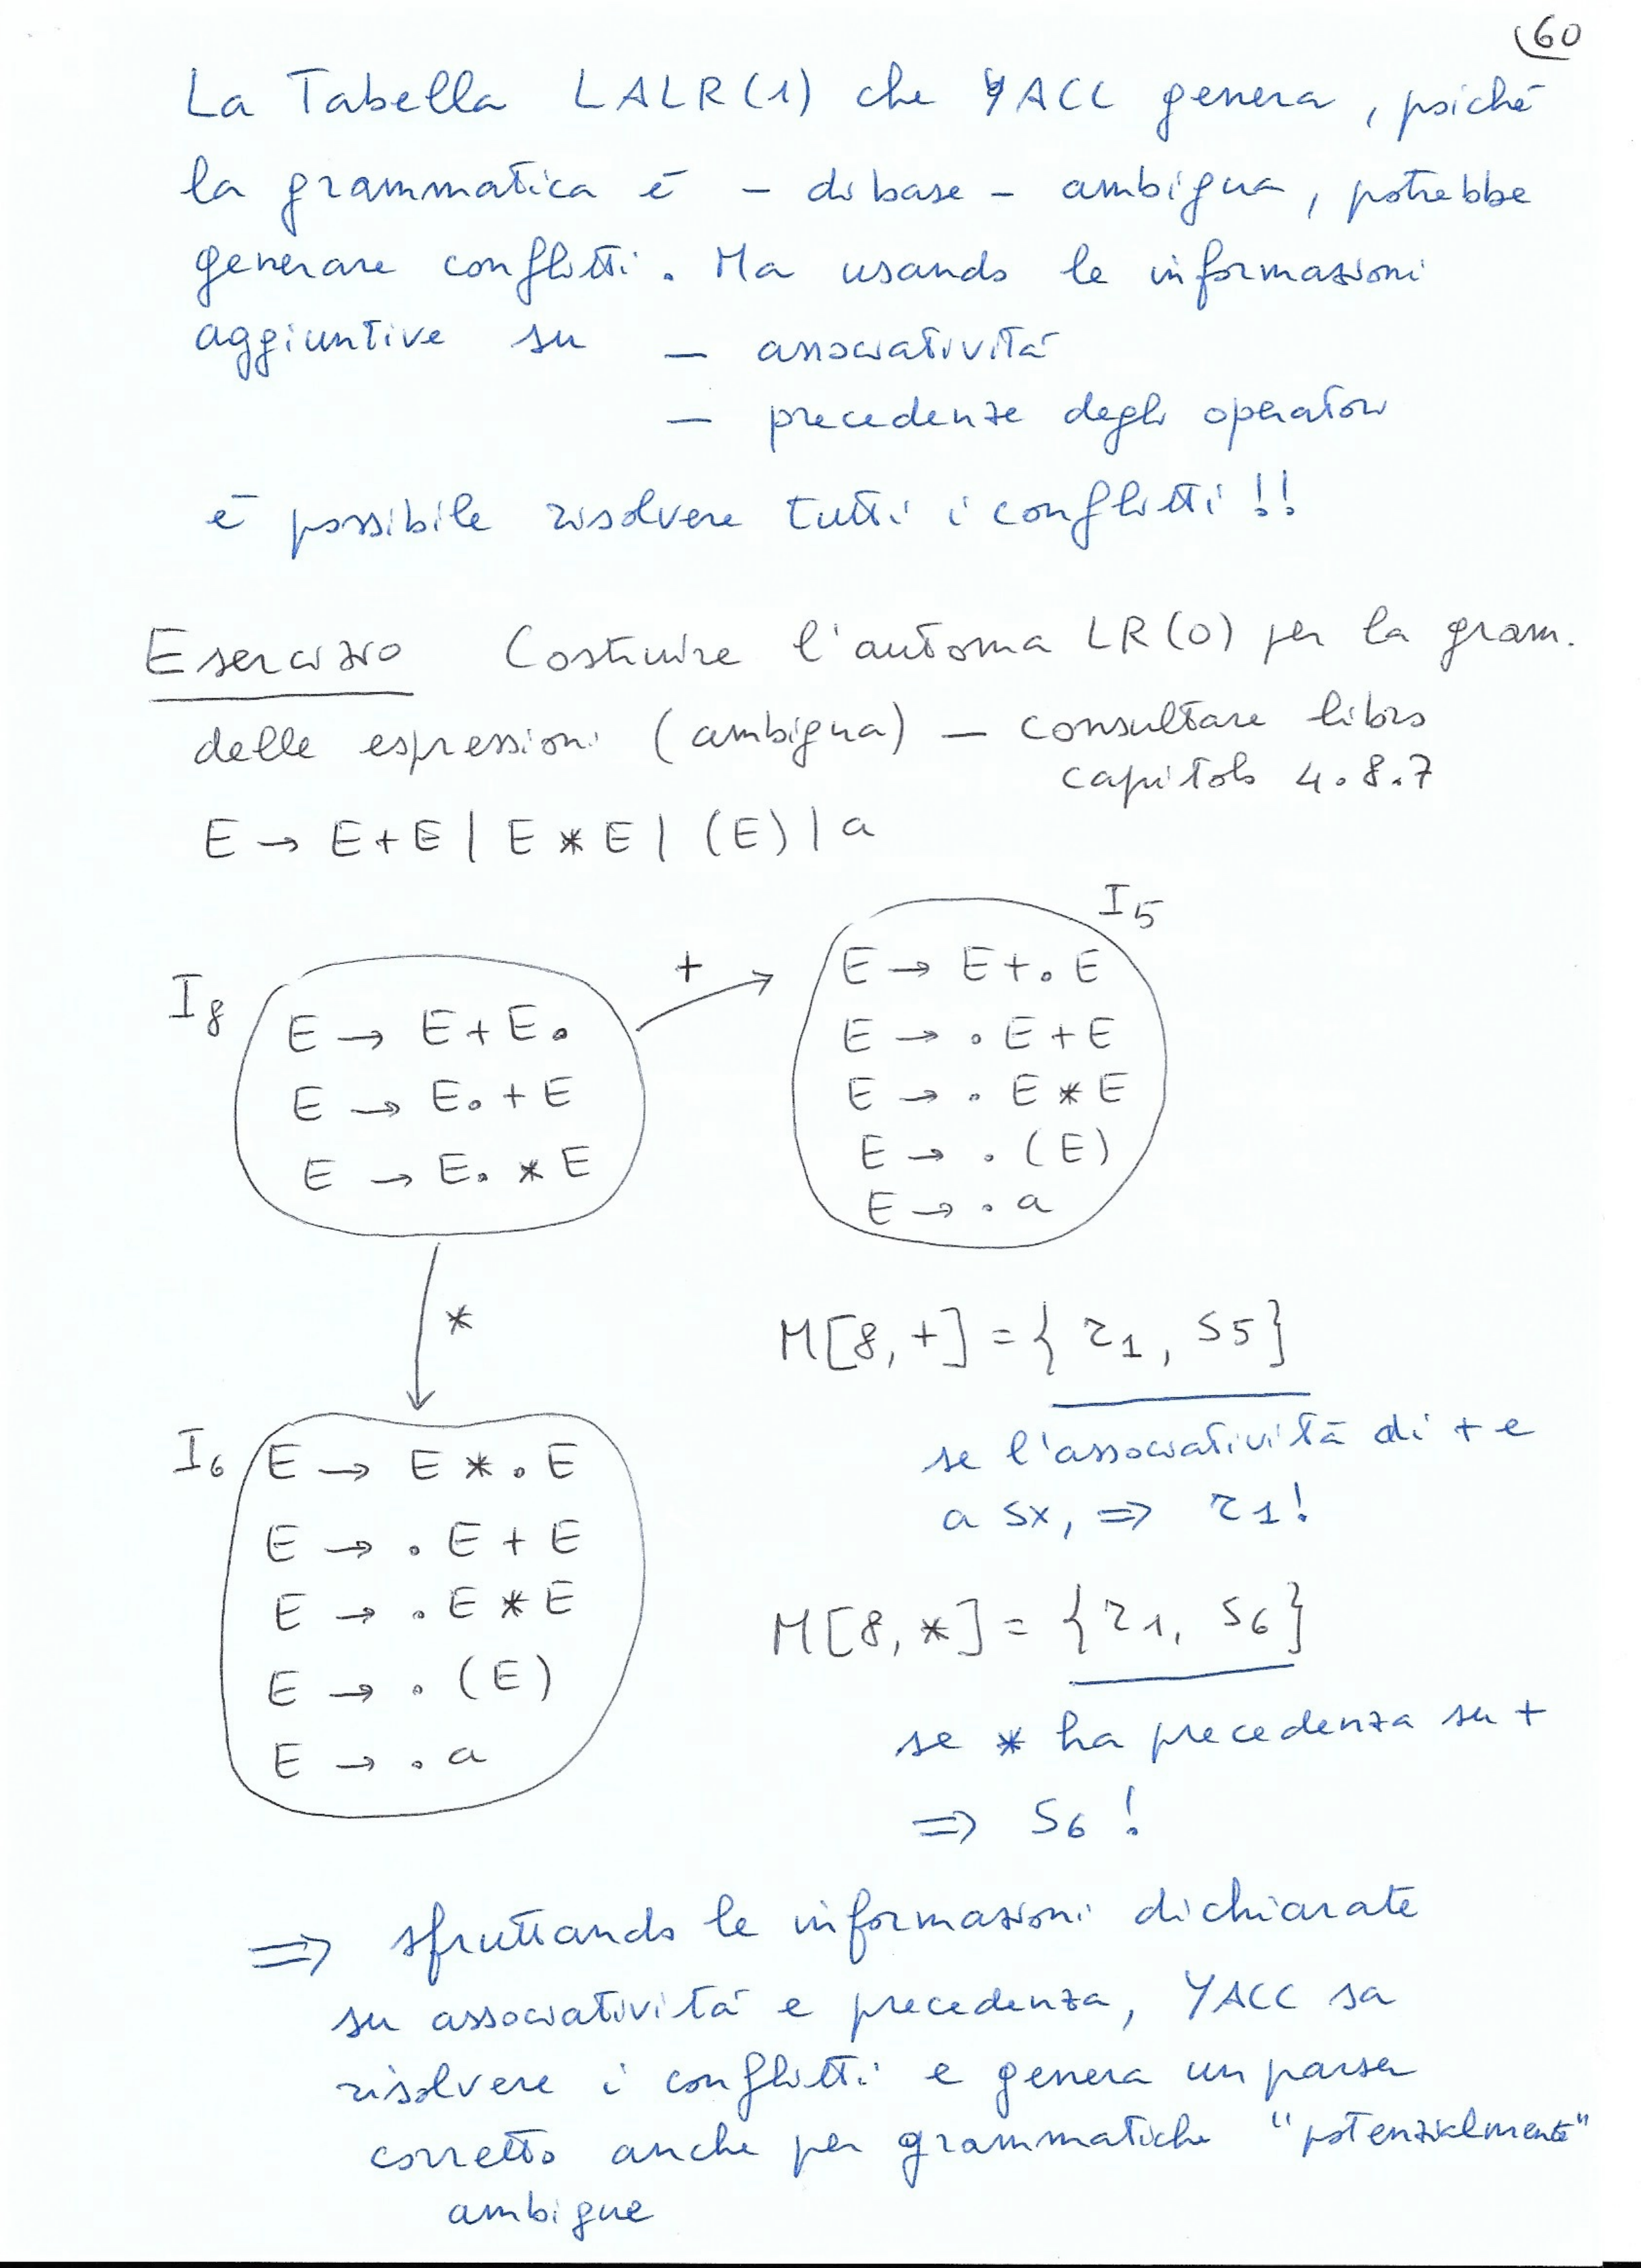 60
La Tabella LALR(1) che YACC genera, poiché
la grammatica è - di base - ambigua, potrebbe
generare conflitti. Ma usando le informazioni
aggiuntive su - associatività
- precedenze degli operatori
è possibile risolvere tutti i conflitti!!
Esercizio Costruire l'automa LR(0) per la gram.
delle espressioni (ambigua) - consultare libro
capitolo 4.8.7
E → E+E | E*E | (E) | a
I8
E → E+E.
E → E.+E
E → E.*E
+
I5
E → E+.E
E → .E+E
E → .E*E
E → .(E)
E → .a
*
I6
E → E*.E
E → .E+E
E → .E*E
E → .(E)
E → .a
M[8,+] = {r1, s5}
se l'associatività di + è
a sx, ⇒ r1!
M[8,*] = {r1, s6}
se * ha precedenza su +
⇒ s6!
⇒ sfruttando le informazioni dichiarate
su associatività e precedenza, YACC sa
risolvere i conflitti e genera un parser
corretto anche per grammatiche "potenzialmente"
ambigue